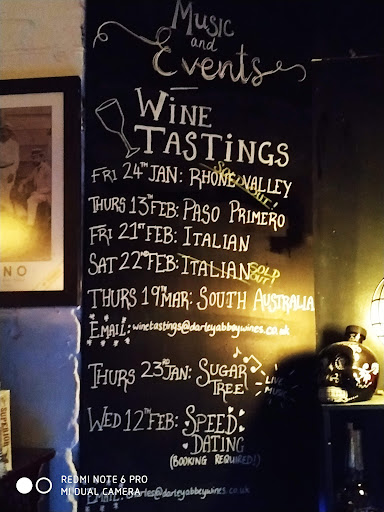 Music
and
Events
Wine
Tastings
Fri 24th Jan: Rhone Valley
Sold Out!
Thurs 13th Feb: Paso Primero
Fri 21st Feb: Italian
Sat 22nd Feb: Italian
Sold Out!
Thurs 19th Mar: South Australia
Email: winetastings@darleyabbeywines.co.uk
Thurs 23rd Jan: Sugar
Tree
Live
Music
Wed 12th Feb: Speed
Dating
(Booking Required!)
Email: charles@darleyabbeywines.co.uk
NO
REDMI NOTE 6 PRO
MI DUAL CAMERA